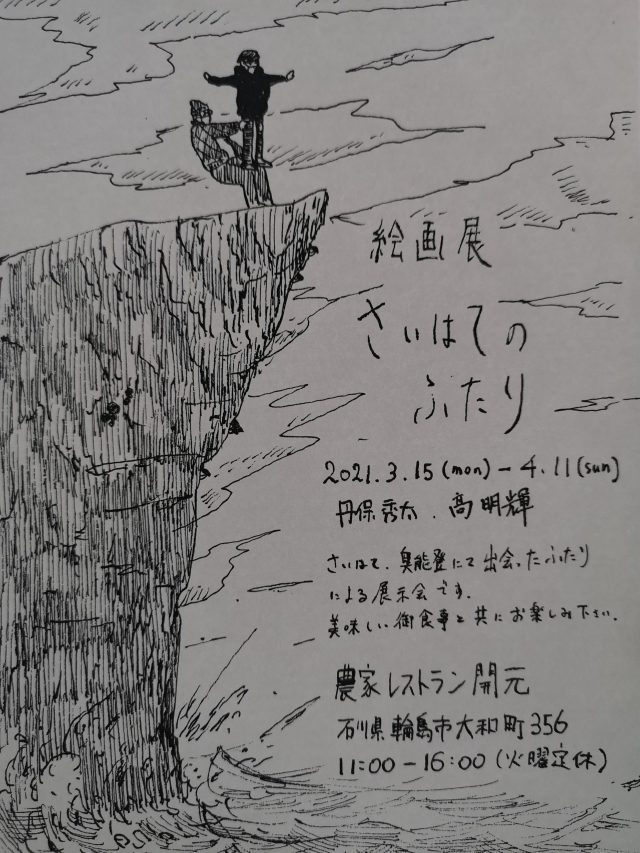 絵画展
さいはての
ふたり
2021.3.15(mon)-4.11(sun)
丹保秀太.髙明輝
さいはて、奥能登にて出会ったふたり
による展示会です.
美味しい御食事と共にお楽しみ下さい.
農家レストラン開元
石川県輪島市大和町356
11:00-16:00(火曜定休)